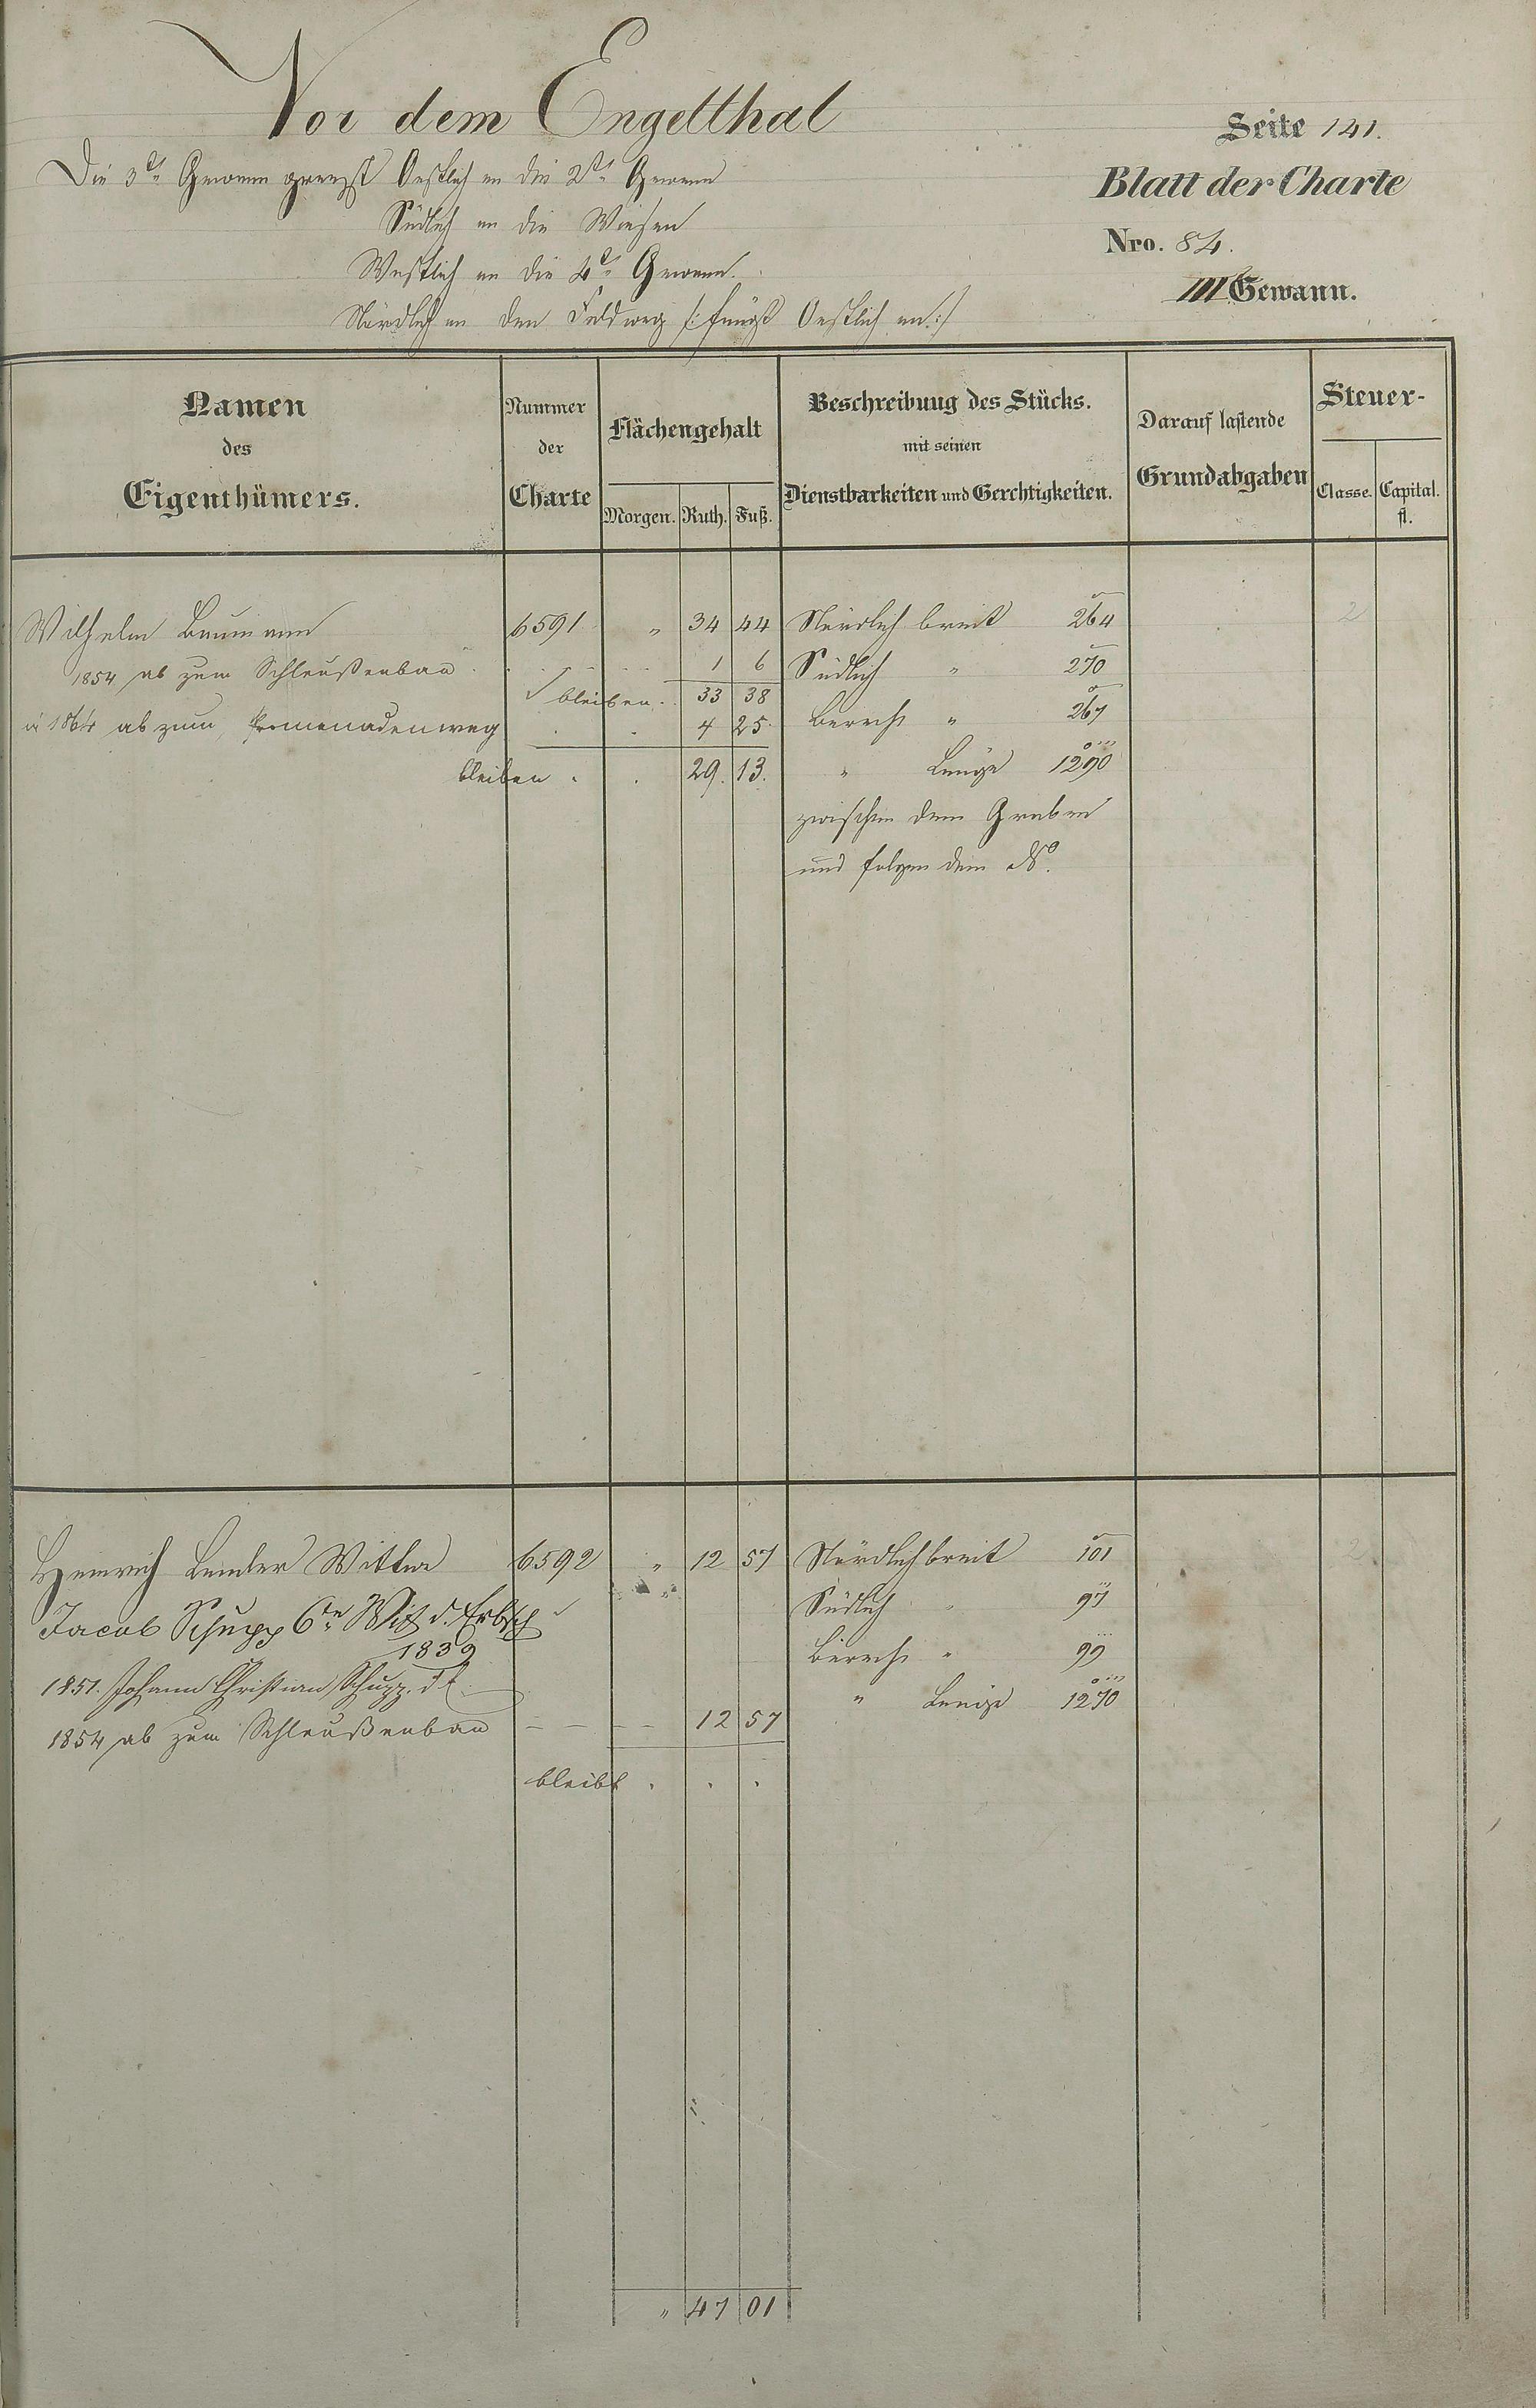 Vor dem Engelthal
Seite 141.
Die 3te Gewann grenzt Oestlich an die 2te Gewann
Blatt der Charte
Südlich an die Wiesen
Nro. 84.
Westlich an die 4te Gewann.
III Gewann.
Nördlich an den Feldweg /: fängt Oestlich an :/
Namen des Eigenthümers.
Nummer der Charte
Flächengehalt
Morgen. Ruth. Fuß.
Beschreibung des Stücks. mit seinen Dienstbarkeiten und Gerechtigkeiten.
Darauf lastende Grundabgaben
Steuer-
Classe. Capital. fl.
Wilhelm Baumann 6591 " 34 44 Nördlich breit 264 2
1854 ab zum Schleußenbau 1 6 Südlich " 270
bleiben 33 38
ab zum Promenadenweg 4 25 Berech " 267
bleiben 29. 13. " Länge 1290
zwischen dem Graben
und folgendem No.
Heinrich Wittwe 6592 " 12 57 Nördlich breit 101 2
Jacob Schupp 6te Wit. d. Erbsch Südlich " 97
1839 Berech " 99
1851. Johann Christian Schupp. " Länge 1270
1854 ab zum Schleußenbau 12 57
bleibt . . .
" 47 01